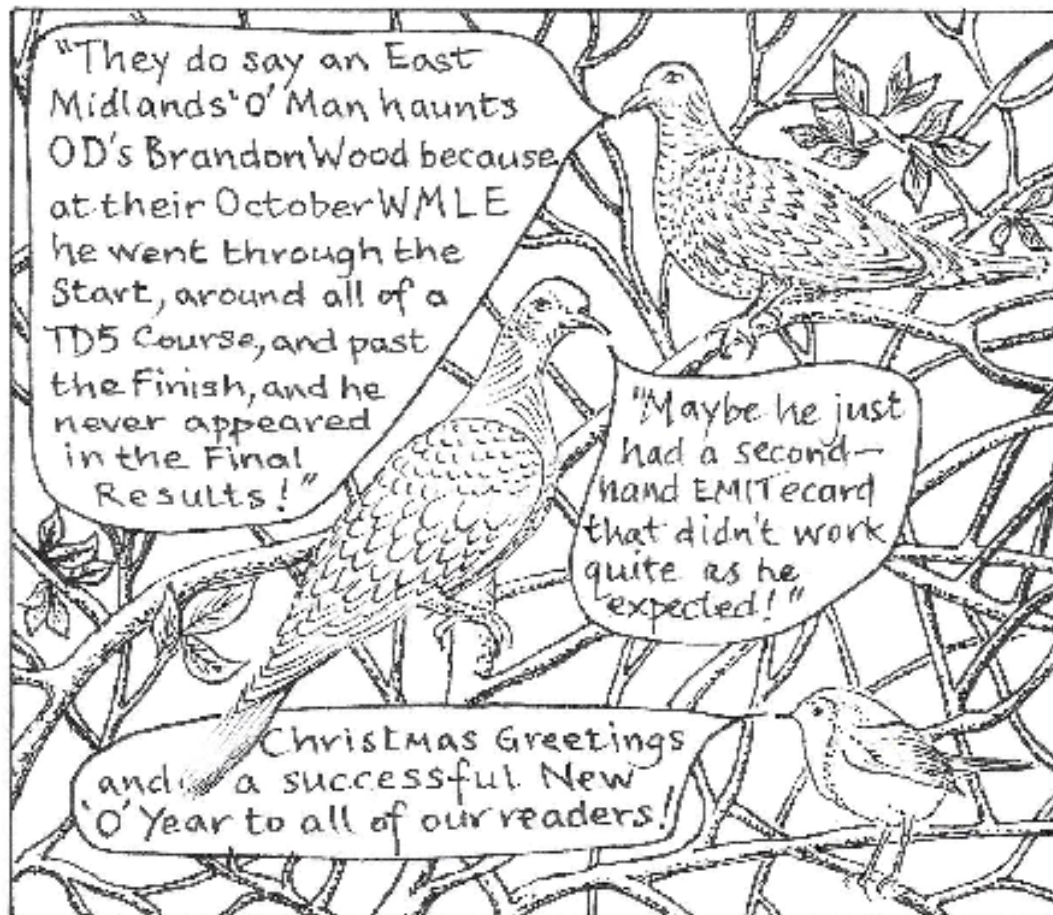 "They do say an East
Midlands 'O' Man haunts
OD's Brandon Wood because
at their October WMLE
he went through the
Start, around all of a
TD5 Course, and past
the Finish, and he
never appeared
in the Final
Results!"
"Maybe he just
had a second-
hand EMIT ecard
that didn't work
quite as he
expected!"
Christmas Greetings
and a successful New
'O' Year to all of our readers!